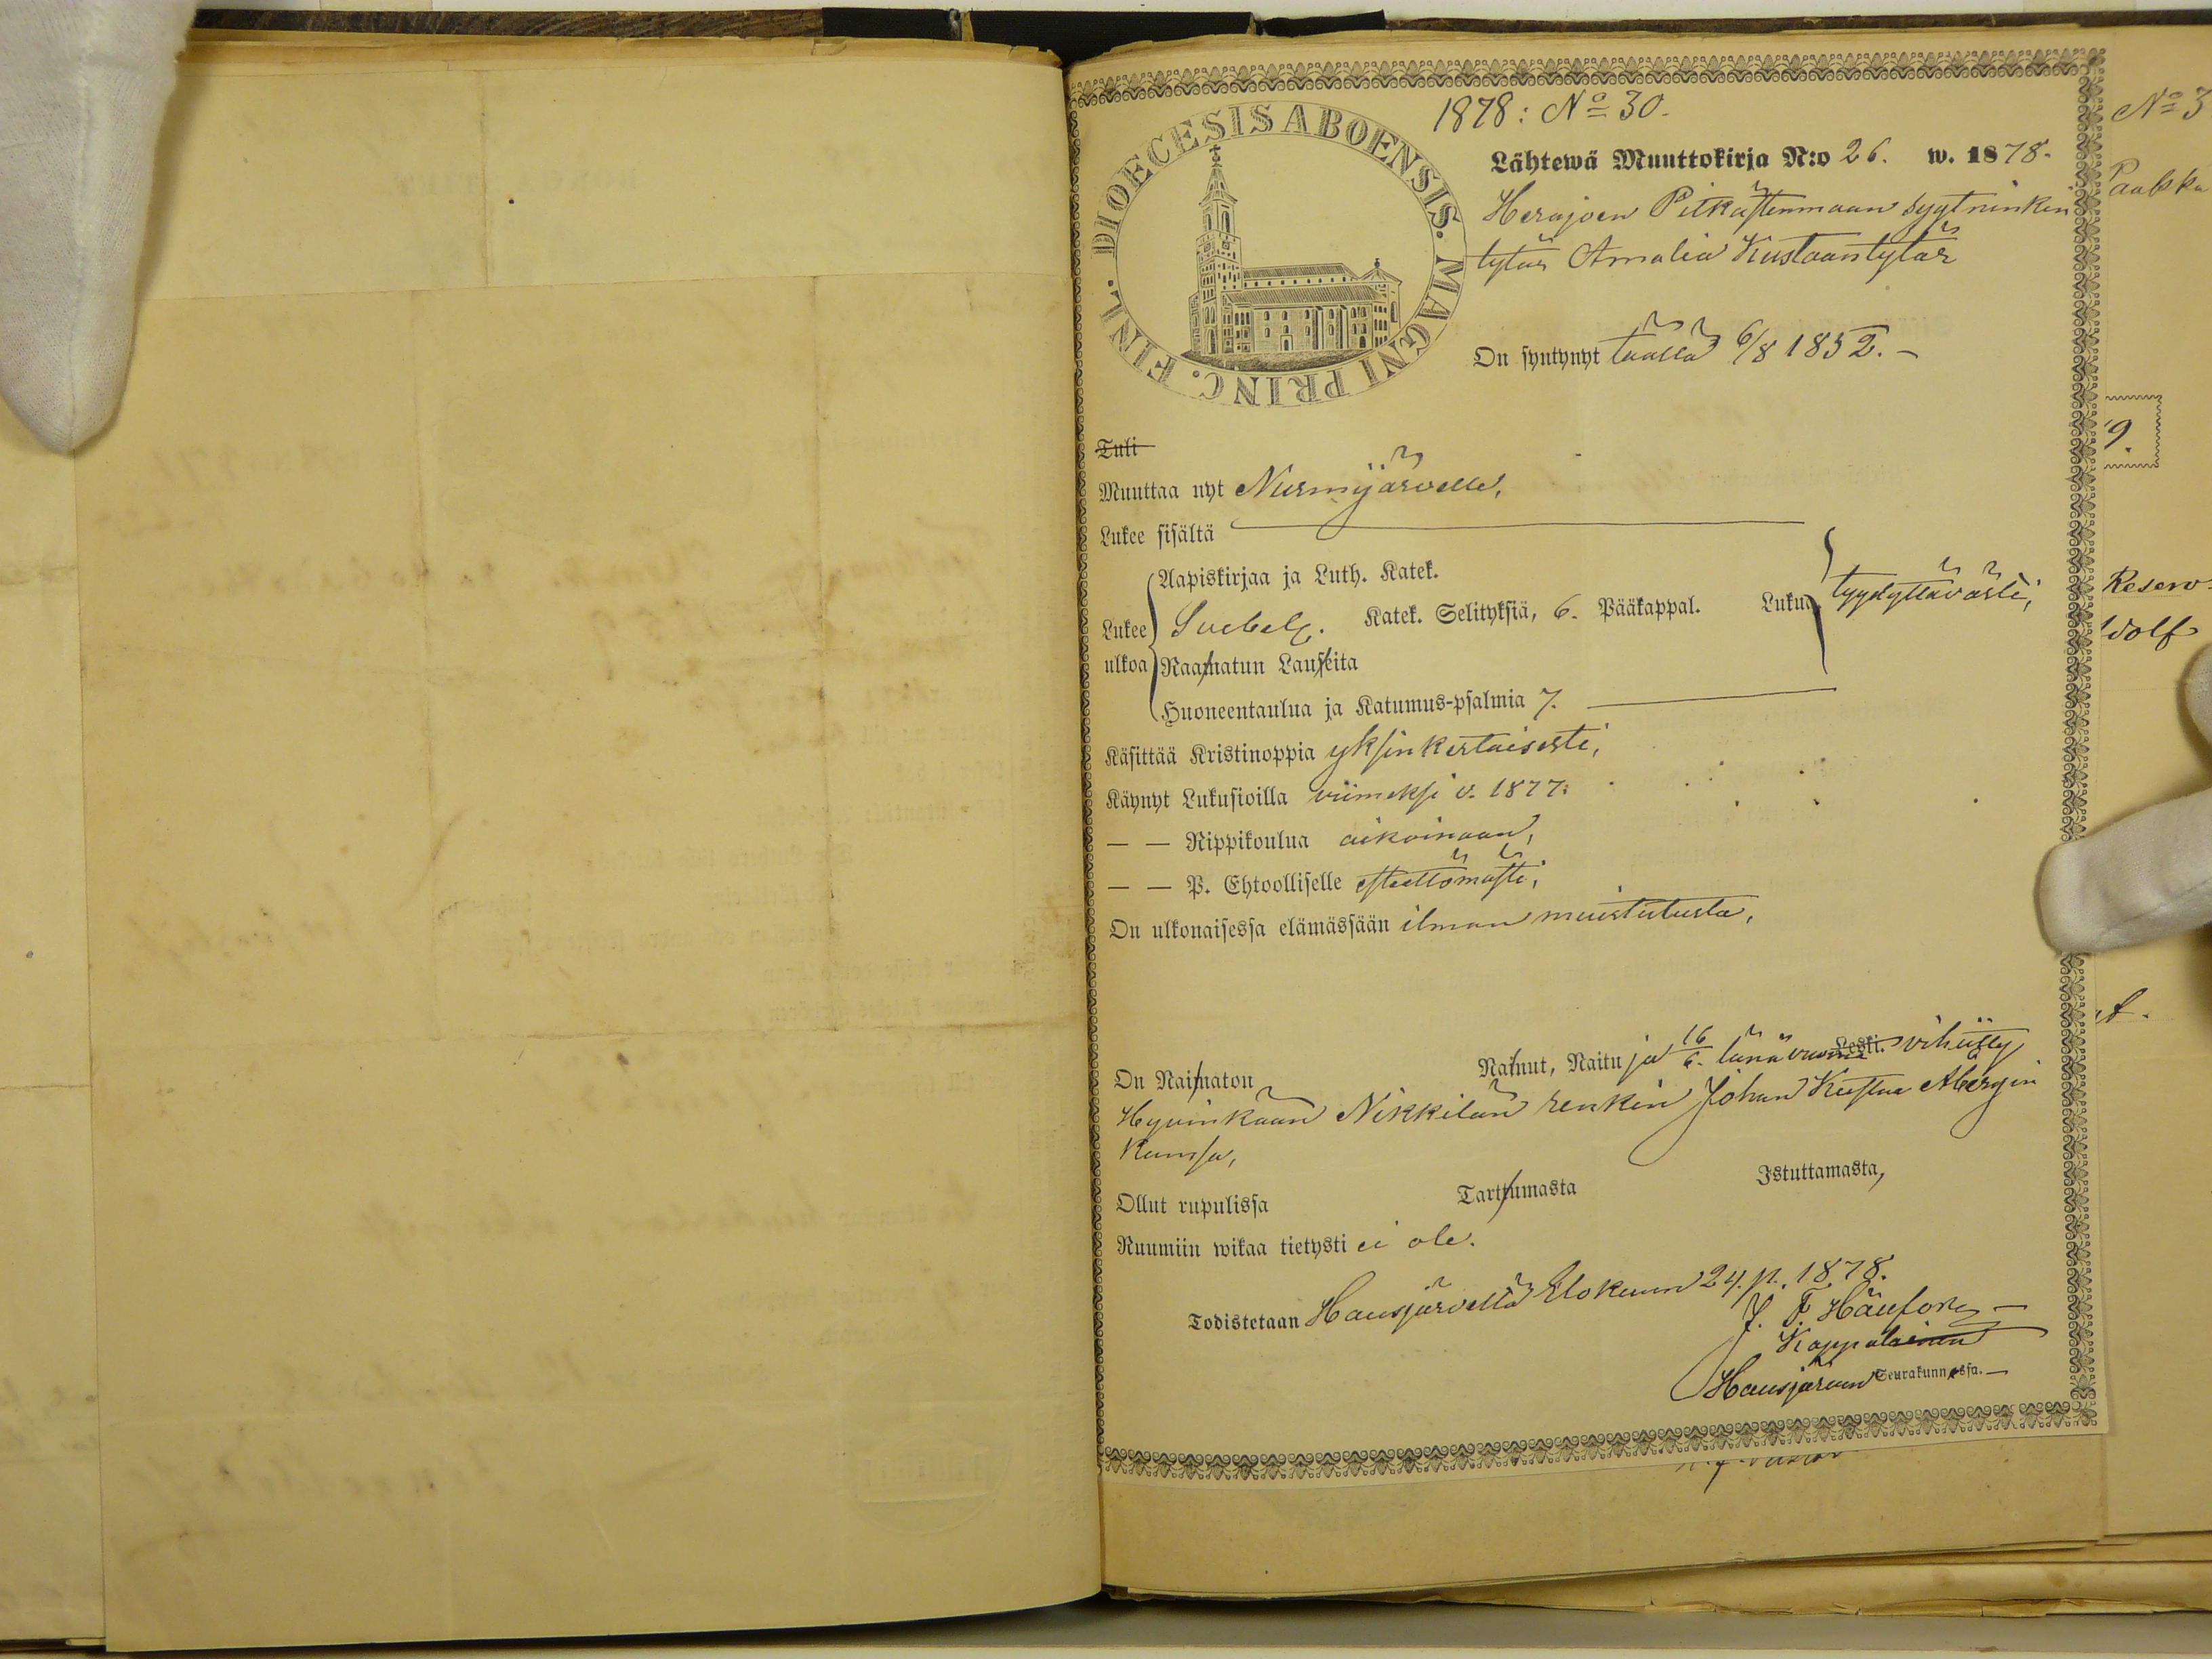 1878: No 30.
DIOECESIS ABOENSIS. MAGNI PRINC. FINL.
Lähtewä Muuttokirja N:o 26. w. 1878.
Herajoen Pitkästenmaan sytninkin
tytär Amalia Kustaantytär
On syntynyt täällä 6/8 1852. –
Tuli
Muuttaa nyt Nurmijärvelle,
Lukee sisältä
Aapiskirjaa ja Luth. Katek.
Lukee ulkoa Svebel. Katek. Selityksiä, 6. Pääkappal. Lukua tyydyttävästi,
Raamatun Lauseita
Huoneentaulua ja Katumus-psalmia 7.
Käsittää Kristinoppia yksinkertaisesti,
Käynyt Lukusioilla viimeksi v. 1877.
— — Rippikoulua aikoinaan,
— — P. Ehtoolliselle esteettömästi,
On ulkonaisessa elämässään ilman muistutusta,
On Naimaton Nainut, Naitu ja 16/6. tänä vuonna Leski. vihitty
Hyvinkään Nikkilän renkin Johan Kustaa Åbergin
kanssa,
Ollut rupulissa Tarttumasta Istuttamasta,
Ruumiin wikaa tietysti ei ole.
Todistetaan Hausjärvellä Elokuun 24. p. 1878.
J. F.
Kappalainen
Hausjärven Seurakunnassa. —
No 3
Paakka
9.
Reserv
dolf